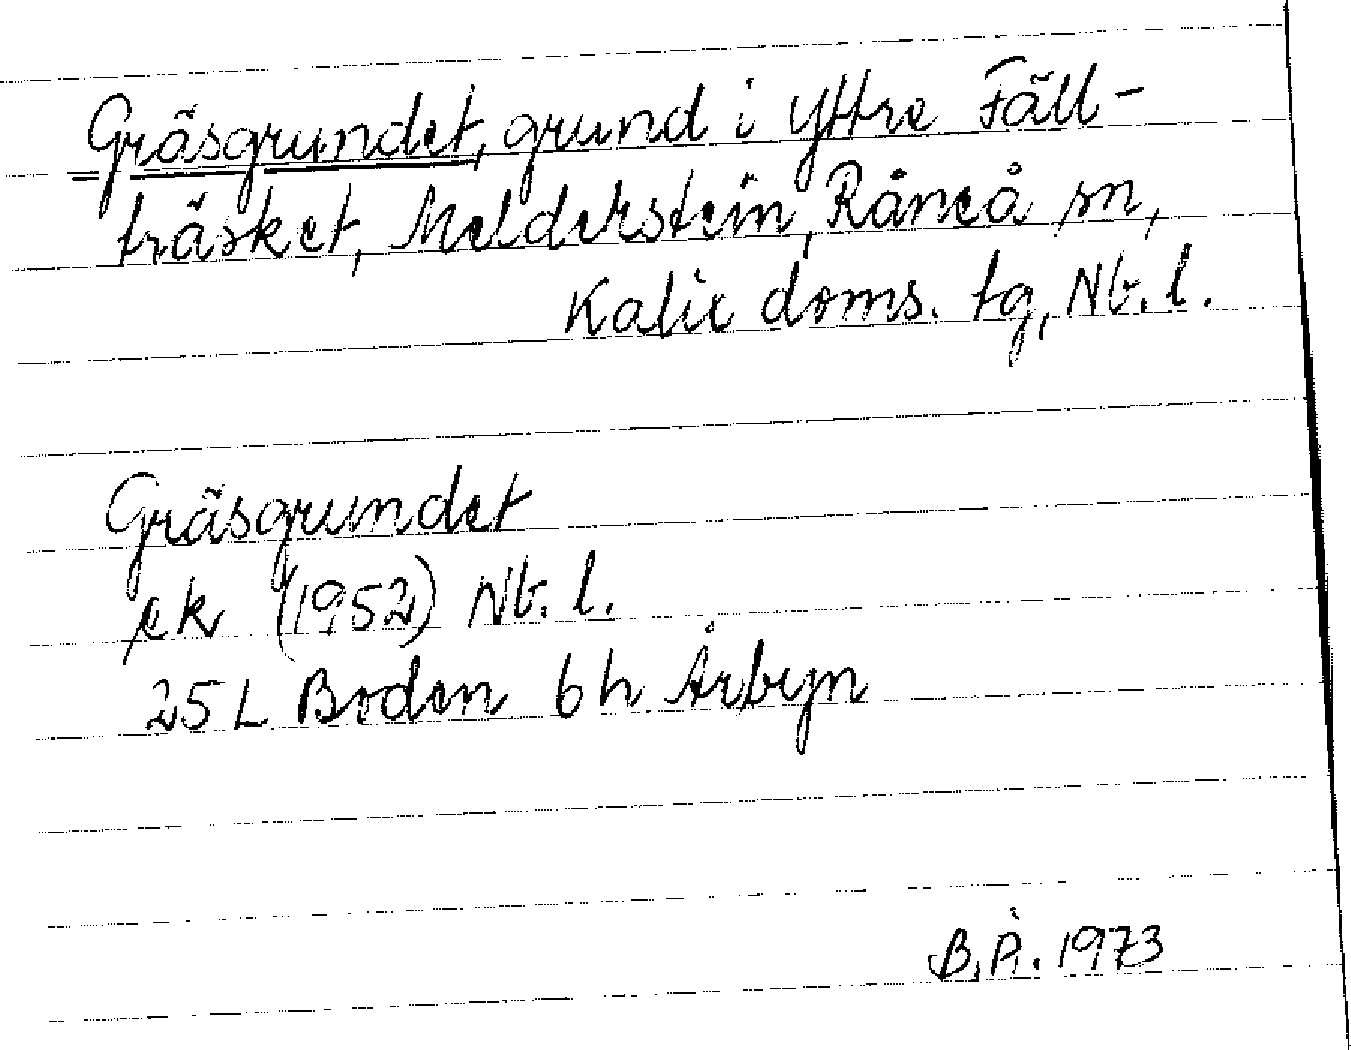 Gräsgrundet, grund i Yttre Fäll-
träsket, Melderstein, Råneå sn,
Kalix doms. tg, Nb. l.
Gräsgrundet
ek (1952) Nb. l.
25 L Boden 6 h Årbyn
B. Å. 1973